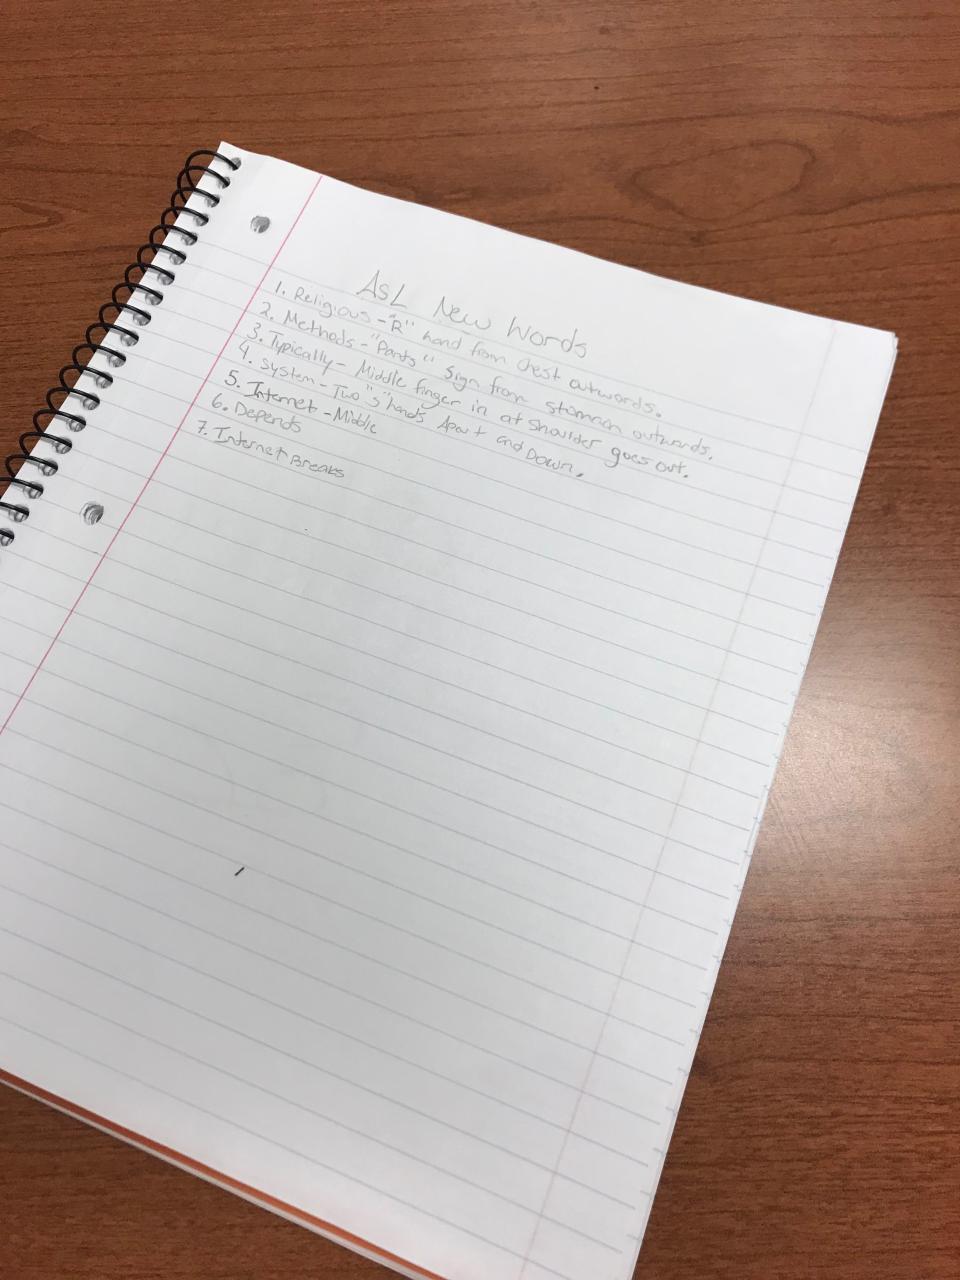 ASL New Words
1. Religious - "R" hand from chest outwards.
2. Methods - "Pants" sign from stomach outwards.
3. Typically - Middle finger in at shoulder goes out.
4. System - Two "S" hands Apart and Down.
5. Internet - Middle
6. Depends
7. Internet Breaks